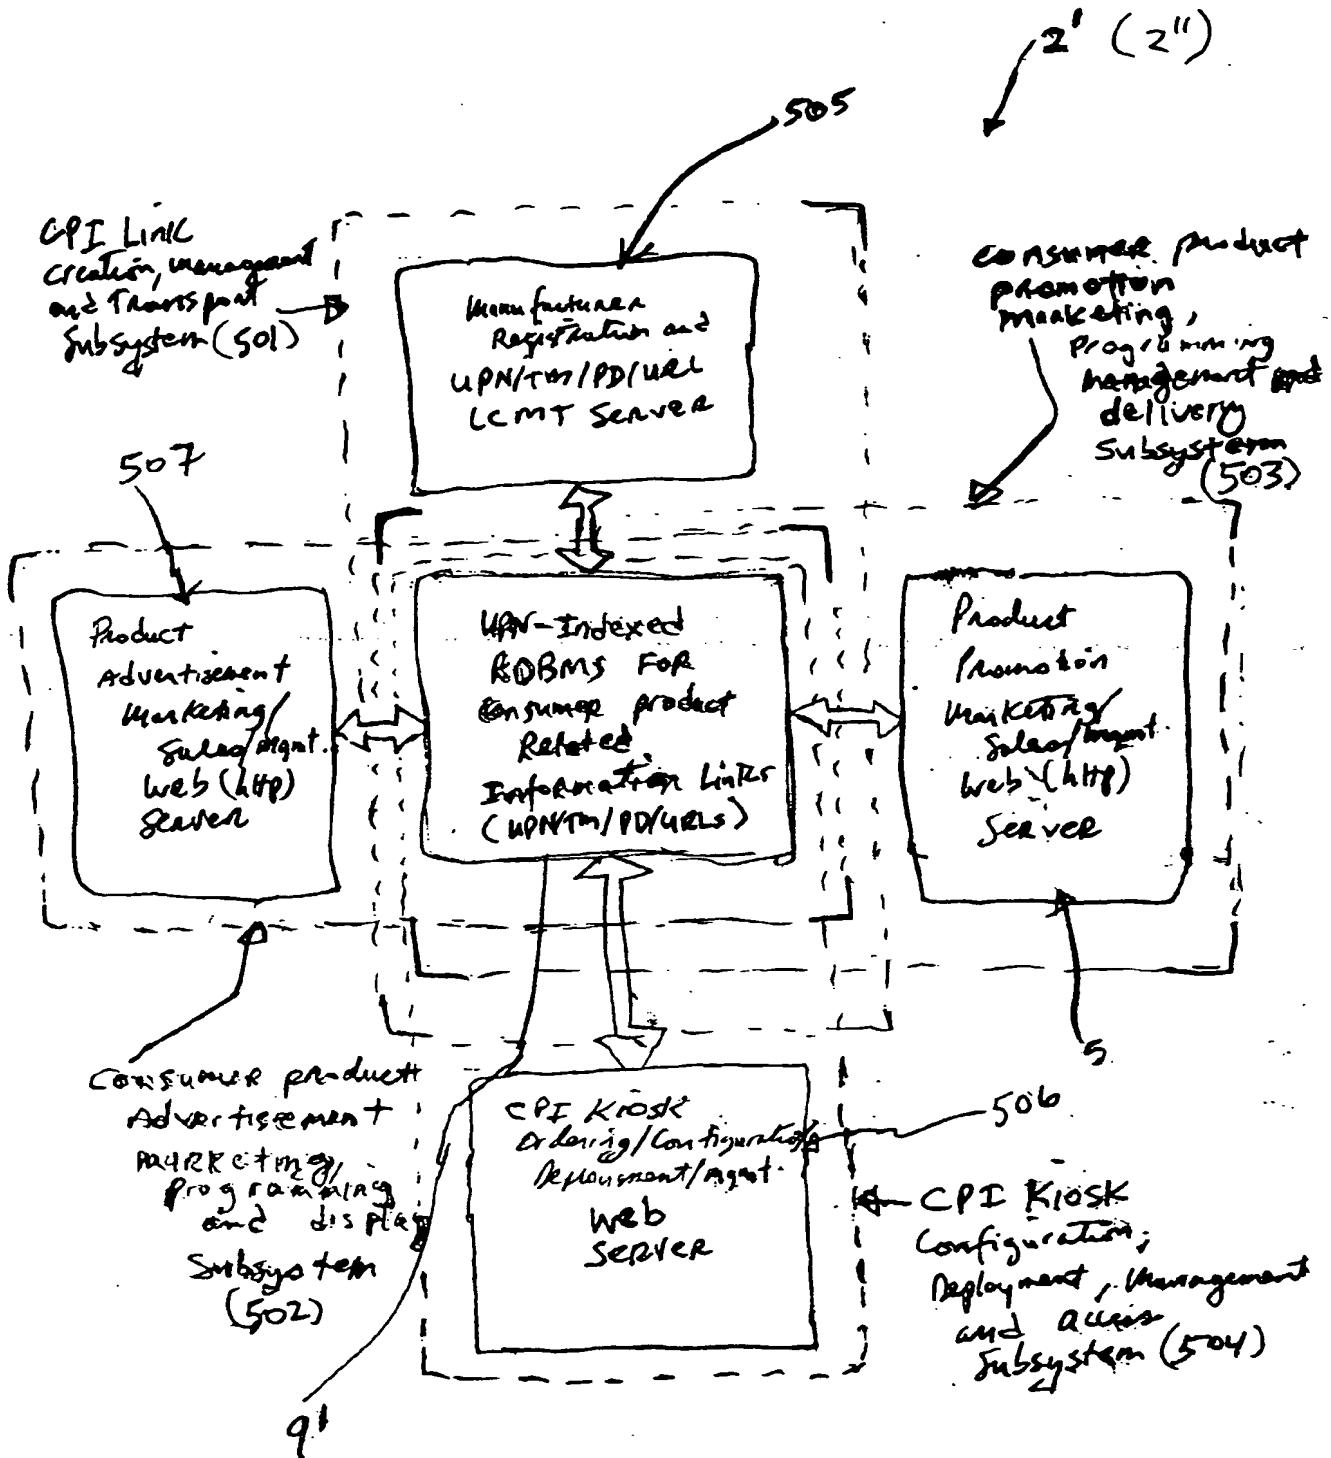 2' (2")
505
CPI Link
Creation, Management
and Transport
Subsystem (501)
Manufacturer
Registration and
UPN/TM/PD/URL
LCMT SERVER
Consumer product
promotion
marketing,
Programming
management and
delivery
Subsystem
(503)
507
Product
Advertisement
Marketing/
Sales/Mgmt.
Web (http)
Server
UPN-Indexed
RDBMS FOR
Consumer product
Related
Information Links
(UPN/TM/PD/URLs)
Product
Promotion
Marketing/
Sales/Mgmt
Web (http)
Server
5
Consumer product
Advertisement
Marketing,
programming
and display
Subsystem
(502)
CPI Kiosk
Ordering/Configuration/
Deployment/Mgmt.
Web
SERVER
506
CPI KIOSK
Configuration,
Deployment, Management
and access
Subsystem (504)
9'